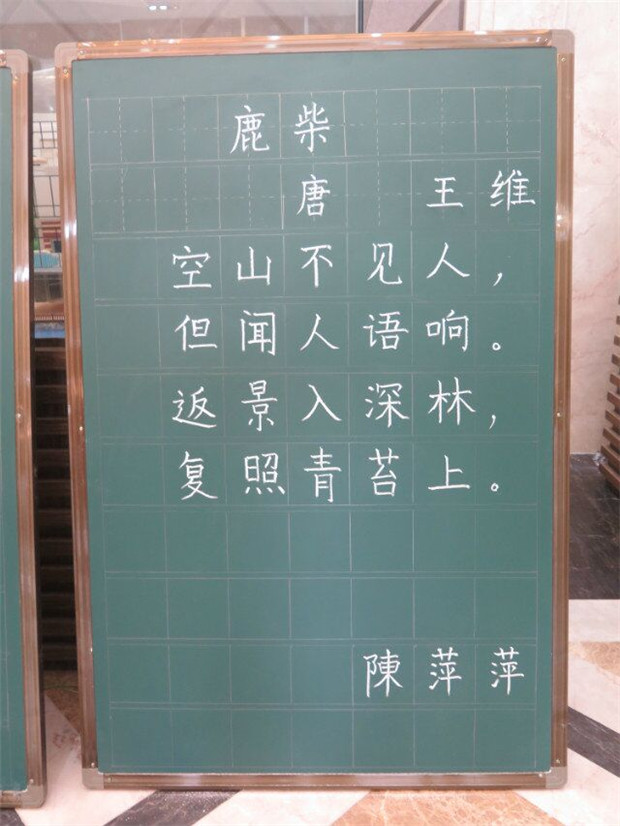 鹿柴
唐 王维
空山不见人，
但闻人语响。
返景入深林，
复照青苔上。
陳萍萍